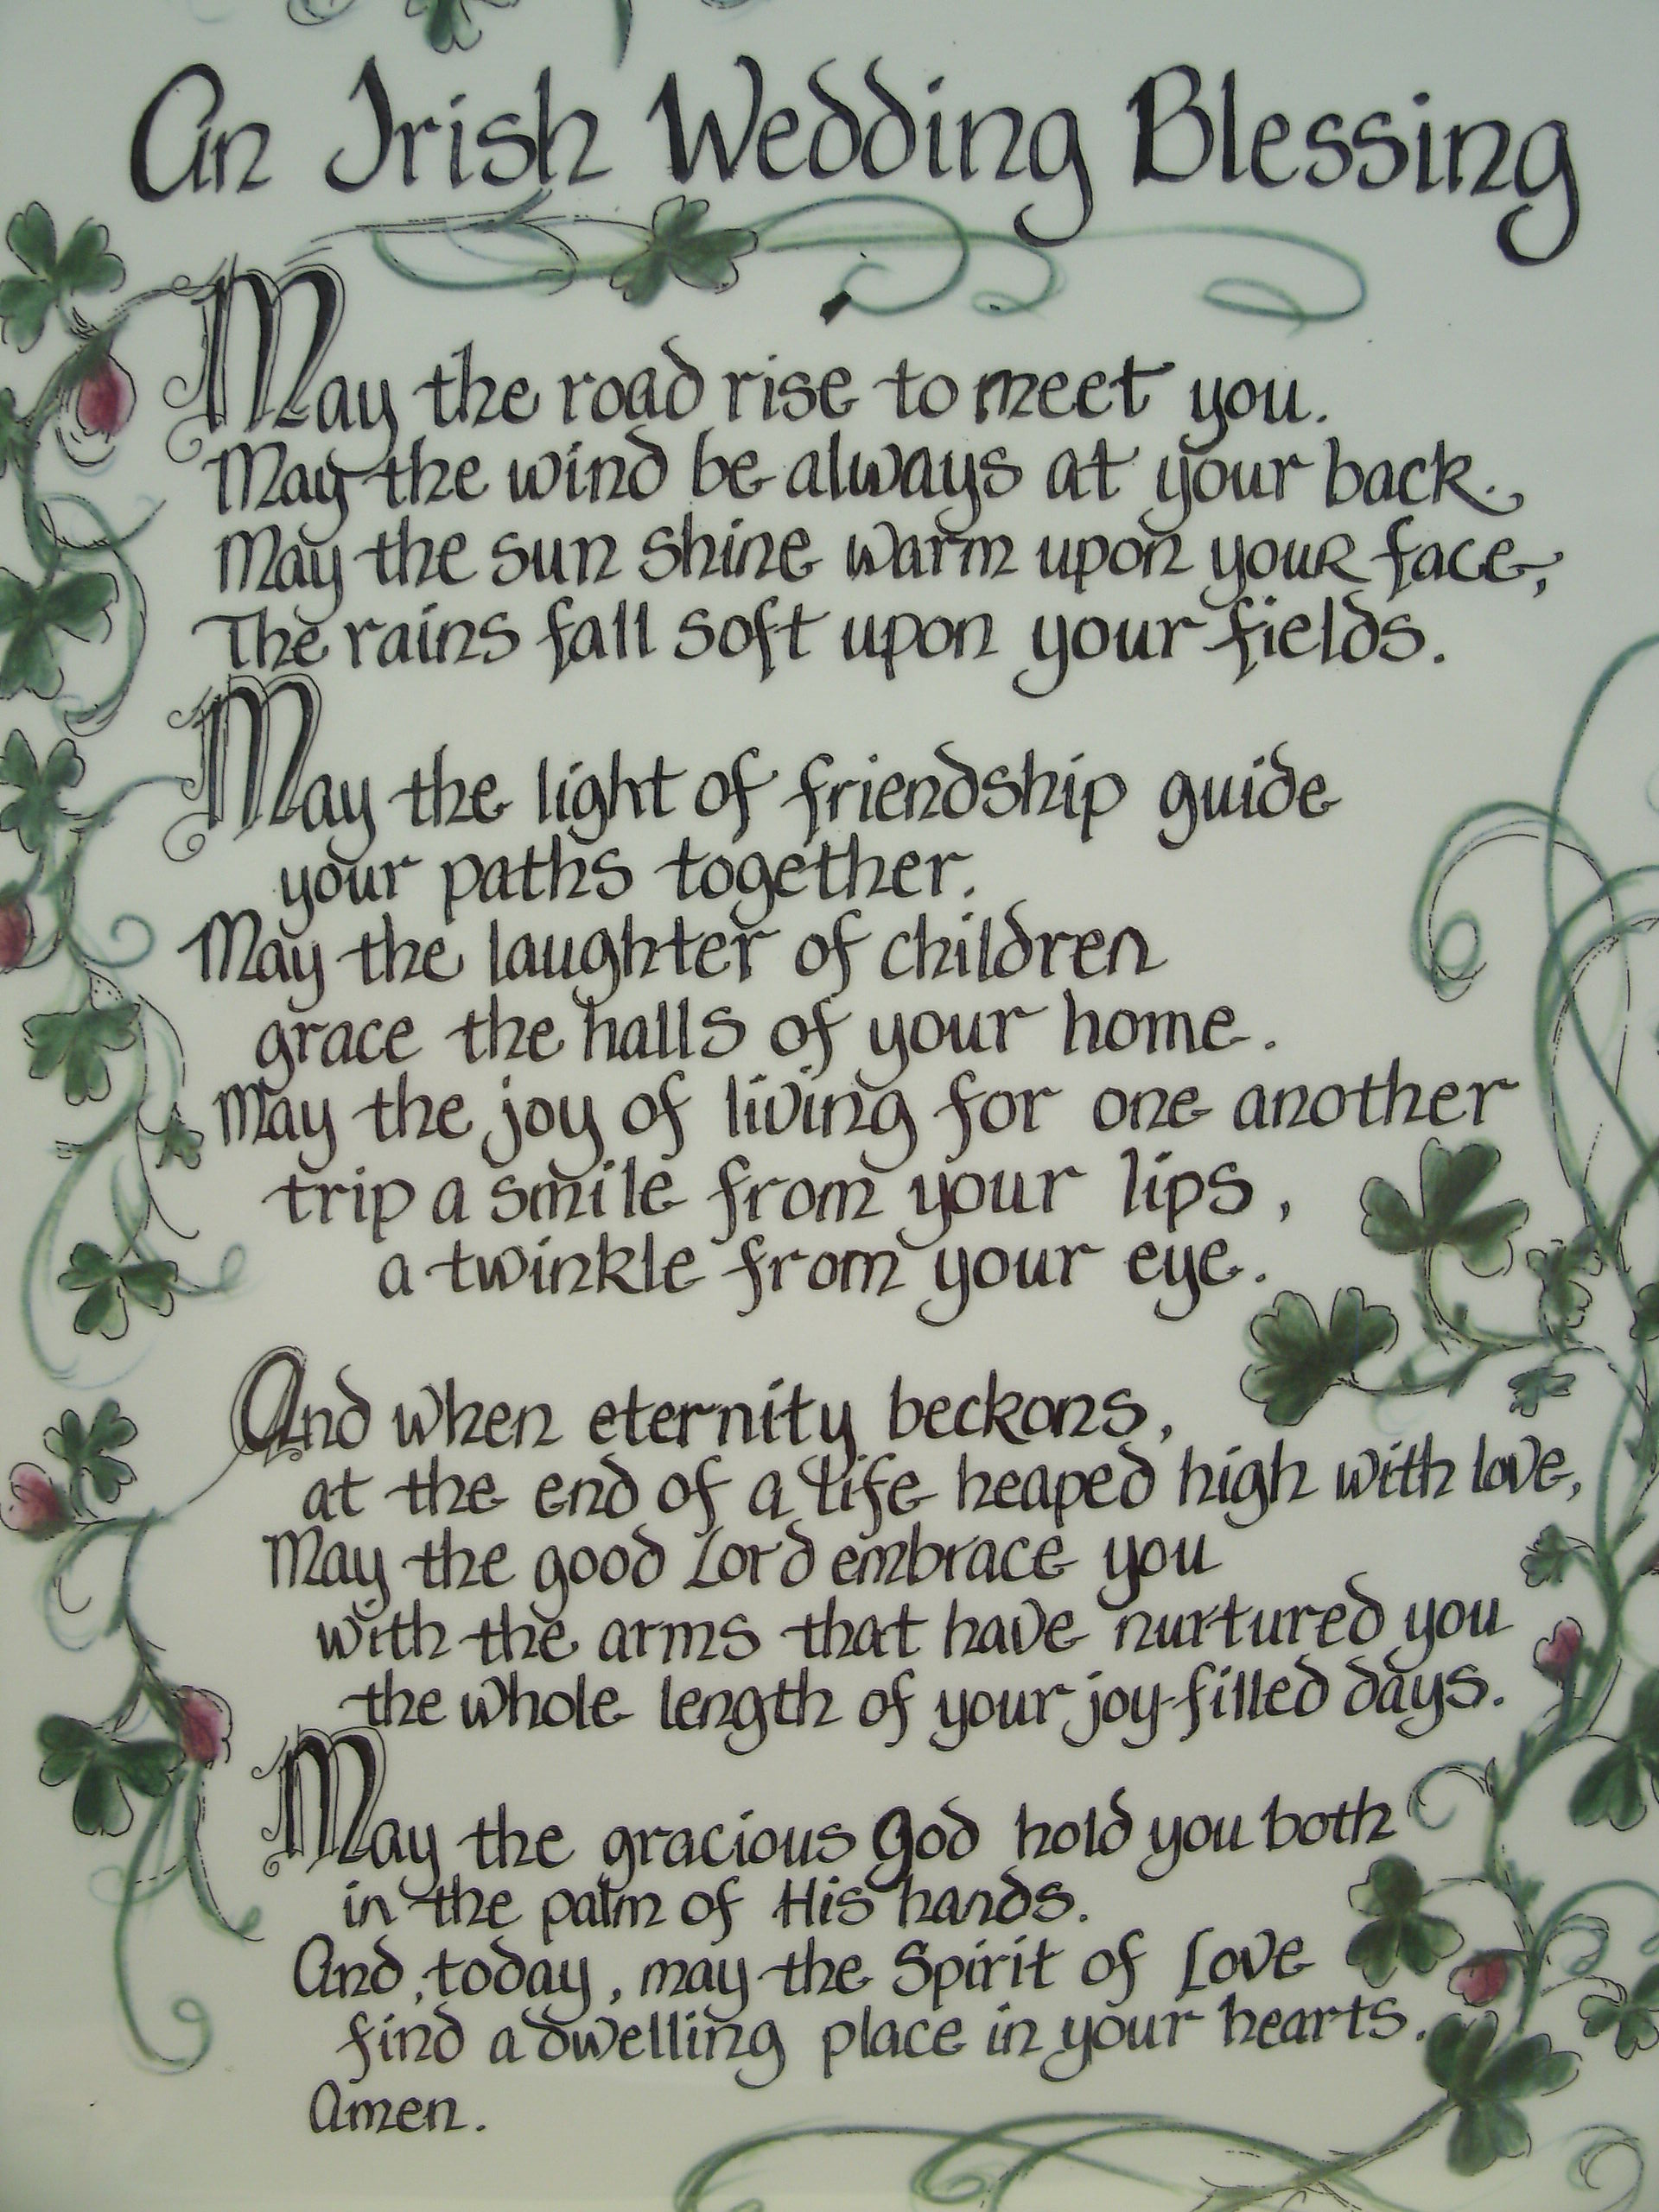 An Irish Wedding Blessing
May the road rise to meet you.
May the wind be always at your back.
May the sun shine warm upon your face,
The rains fall soft upon your fields.
May the light of friendship guide
your paths together.
May the laughter of children
grace the halls of your home.
May the joy of living for one another
trip a smile from your lips,
a twinkle from your eye.
And when eternity beckons,
at the end of a life heaped high with love,
May the good Lord embrace you
with the arms that have nurtured you
the whole length of your joy-filled days.
May the gracious God hold you both
in the palm of His hands.
And, today, may the Spirit of Love
find a dwelling place in your hearts.
Amen.